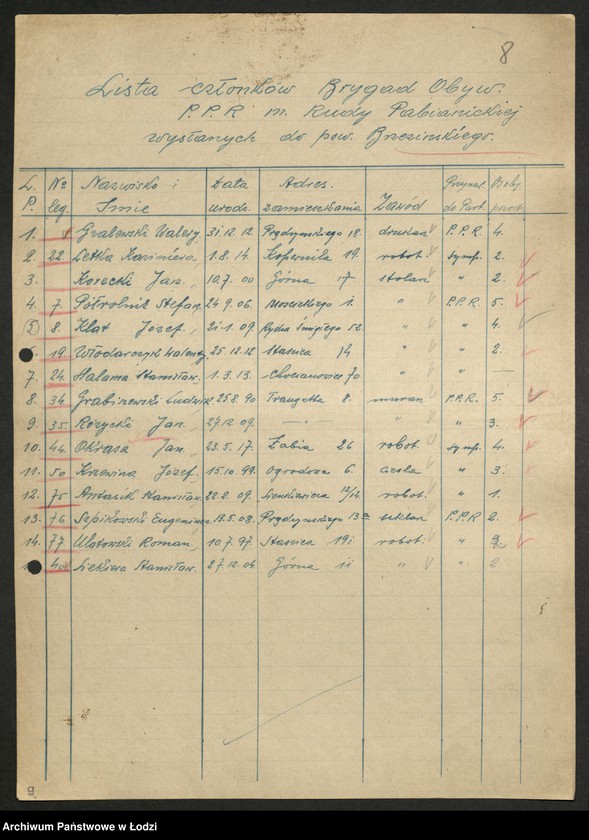 8
Lista członków Brygad Obyw.
P.P.R m. Rudy Pabianickiej
wysłanych do pow. Brzezińskiego.
L. P. № leg. Nazwisko i Imie Data urodz. Adres. zamieszkania Zawód Przynal. do Part.
1. Grabewski Walery 21.12.12 Prądzyńskiego 18. drukarz P.P.R. 4.
2. 22. Letka Kazimiera, 1.8.14 Kopernika 19. robot. symp. 2.
3. Korecki Jan., 10.7.00 Górna 17 stolarz " 2.
4. 7. Półrolnik Stefan. 24.9.06 Mościckiego 1. " P.P.R. 5.
5) 8. Klat Józef, 21.1.09 Rydza Śmigłego 52. " " 4.
19. Włodarczyk Walenty, 25.12.12 Staszica 14 " " 2.
7. 24. Halama Stanisław. 1.3.13. Chocianowice 70 " " —
8. 34 Grabiszewski Ludwik. 25.8.90 Traugutta 8. murarz P.P.R. 5.
9. 35. Rożycki Jan., 27.12.09. — " — " " 3.
10. 44. Okrasa Jan., 23.5.17. Żabia 26 robot. symp. 4.
11. 50 Krzewina Józef. 15.10.99. Ogrodowa 6. cieśla " 3.
12. 75 Antasik Stanisław, 22.8.09. Sienkiewicza 12/14 robot. " 1.
13. 76 Eugeniusz 13.5.08. Prądzyńskiego 13a szklarz P.P.R 2.
14. 77. Ulatowski Roman, 10.7.97. Staszica 19i robot. "
Siekiera Stanisław. 27.12.04 Górna 11 " " 2
g
Archiwum Państwowe w Łodzi